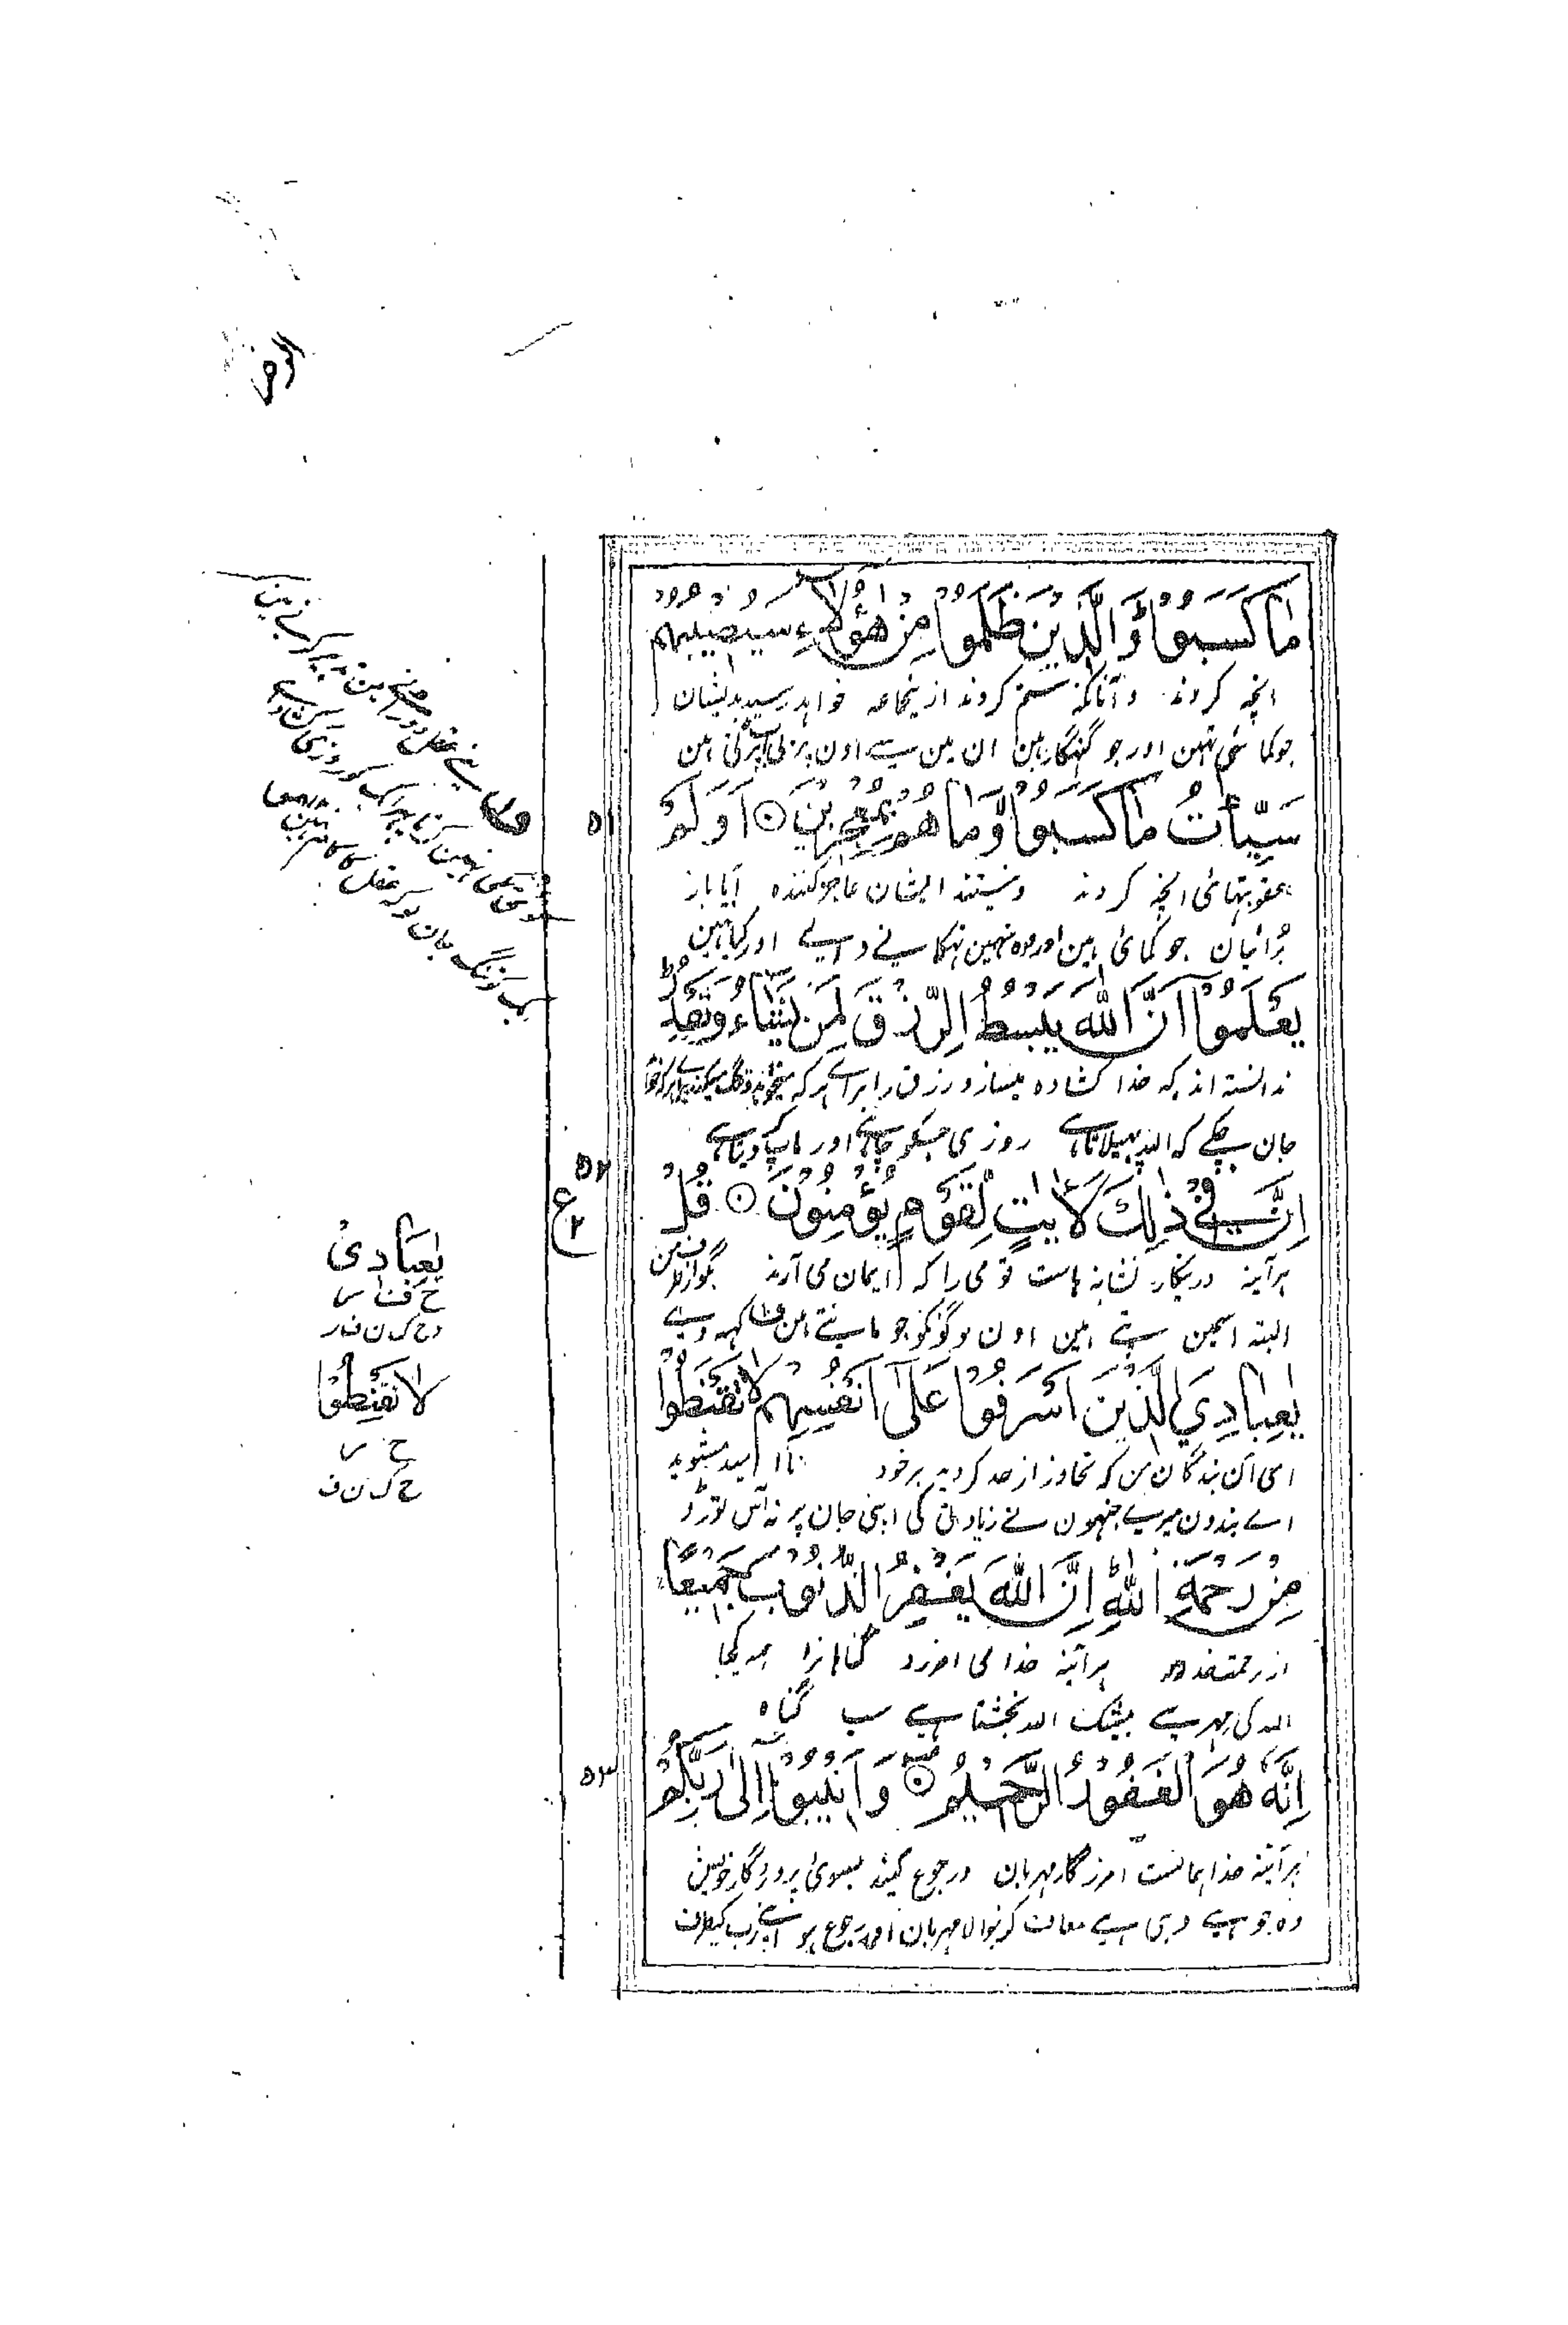 مَا كَسَبُوْا وَالَّذِيْنَ ظَلَمُوْا مِنْ هٰٓؤُلَآءِ سَيُصِيْبُهُمْ
انچه کردند و آنانکه ستم کردند ازینجماعه خواهد رسید بدیشان
جو کمائی تہین اور جو گنہگار ہین ان مین سے اون پر پڑنی ہین
سَيِّاٰتُ مَا كَسَبُوْا وَمَا هُمْ بِمُعْجِزِيْنَ ۝ اَوَلَمْ
۵۱
عقوبتهائی انچه کردند و نیستند ایشان عاجز کننده آیا باز
بُرائیان جو کمائی ہین اور وہ نہین تہکانے والے اور کیا نہین
يَعْلَمُوْا اَنَّ اللّٰهَ يَبْسُطُ الرِّزْقَ لِمَنْ يَّشَآءُ وَيَقْدِرُ
ندانسته اند که خدا کشاده میسازد رزق را برای هر که میخواهد و تنگ میکند برای هر که خواهد
جان چکے کہ اللہ پہیلاتا ہے روزی جسکو چاہے اور ماپ کر دیتا ہے
۵۲
اِنَّ فِيْ ذٰلِكَ لَاٰيٰتٍ لِّقَوْمٍ يُّؤْمِنُوْنَ ۝ قُلْ
ع
۲
هر آینه درینکار نشانه هاست قومی را که ایمان می آرند بگو از طرف من
البته اسمین پتے ہین اون لوگونکو جو مانتے ہین ف کہہ دے
يٰعِبَادِيَ الَّذِيْنَ اَسْرَفُوْا عَلٰٓى اَنْفُسِهِمْ لَا تَقْنَطُوْا
ای آن بندگان من که تجاوز از حد کردید بر خود نا امید مشوید
اے بندون میرے جنہون نے زیادتی کی اپنی جان پر نہ آس توڑو
مِنْ رَّحْمَةِ اللّٰهِ اِنَّ اللّٰهَ يَغْفِرُ الذُّنُوْبَ جَمِيْعًا
از رحمت خدا هر آئینه خدا می آمرزد گناهانرا همه یکجا
اللہ کی مہر سے بیشک اللہ بخشتا ہے سب گناہ
اِنَّهٗ هُوَ الْغَفُوْرُ الرَّحِيْمُ ۝ وَاَنِيْبُوْٓا اِلٰى رَبِّكُمْ
۵۳
هر آئینه خدا همانست آمرزگار مهربان و رجوع کنید بسوی پروردگار خویش
وہ جو ہے وہی ہے معاف کرنیوالا مہربان اور رجوع ہو اپنے رب کیطرف
يٰعِبَادِيْ
لَا تَقْنِطُوْا